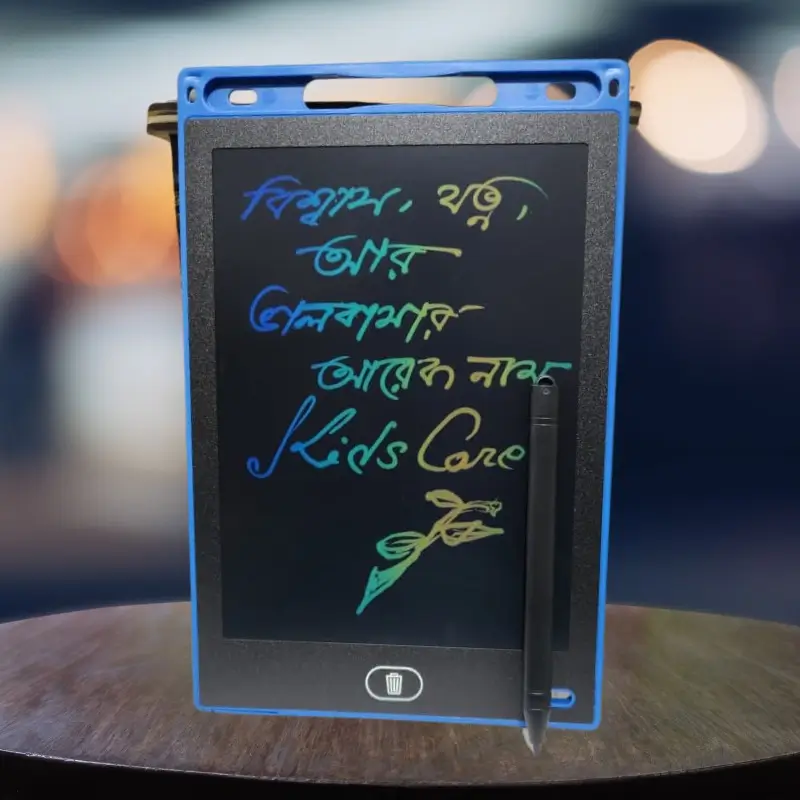 বিশ্বাস, যত্ন,
আর
ভালবাসার
আরেক নাম
Kids Care